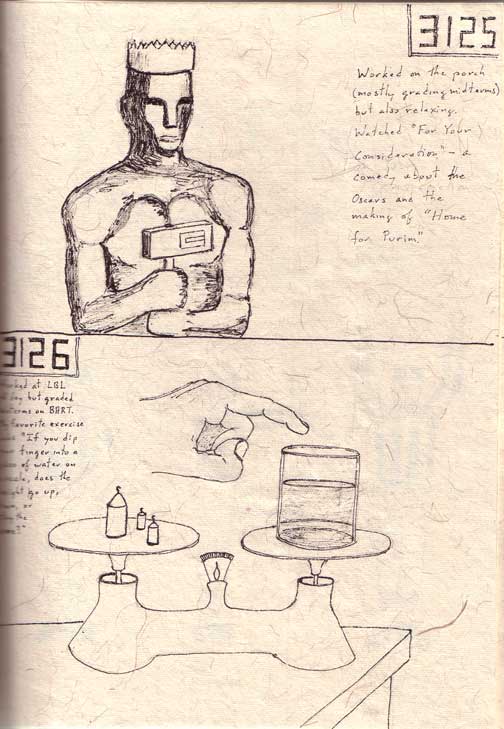 3125
Worked on the porch
(mostly grading midterms)
but also relaxing.
Watched "For Your
Consideration" - a
comedy about the
Oscars and the
making of "Home
for Purim."
3126
worked at LBL
day but graded
on BART.
favorite exercise
"If you dip
finger into a
of water on
does the
go up,
or
the